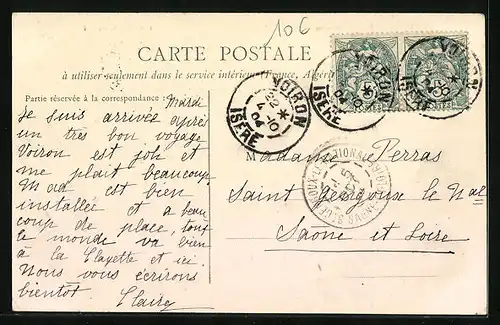 10c
CARTE POSTALE
à utiliser seulement dans le service intérieur (France, Algérie
Partie réservée à la correspondance.
Mardi
Je suis arrivée après
un très bon voyage
Voiron est joli et
me plait beaucoup
Mad est bien
installée et a beau
coup de place, tout
le monde va bien
à la Clayette et ici.
Nous vous écrirons
bientôt Claire
VOIRON
ISÈRE
22
4 -10
04
VOIRON
ISÈRE
04
VOIRON
ISÈRE
Madame Perras
Saint Gengoux le Nal
Saone et Loire